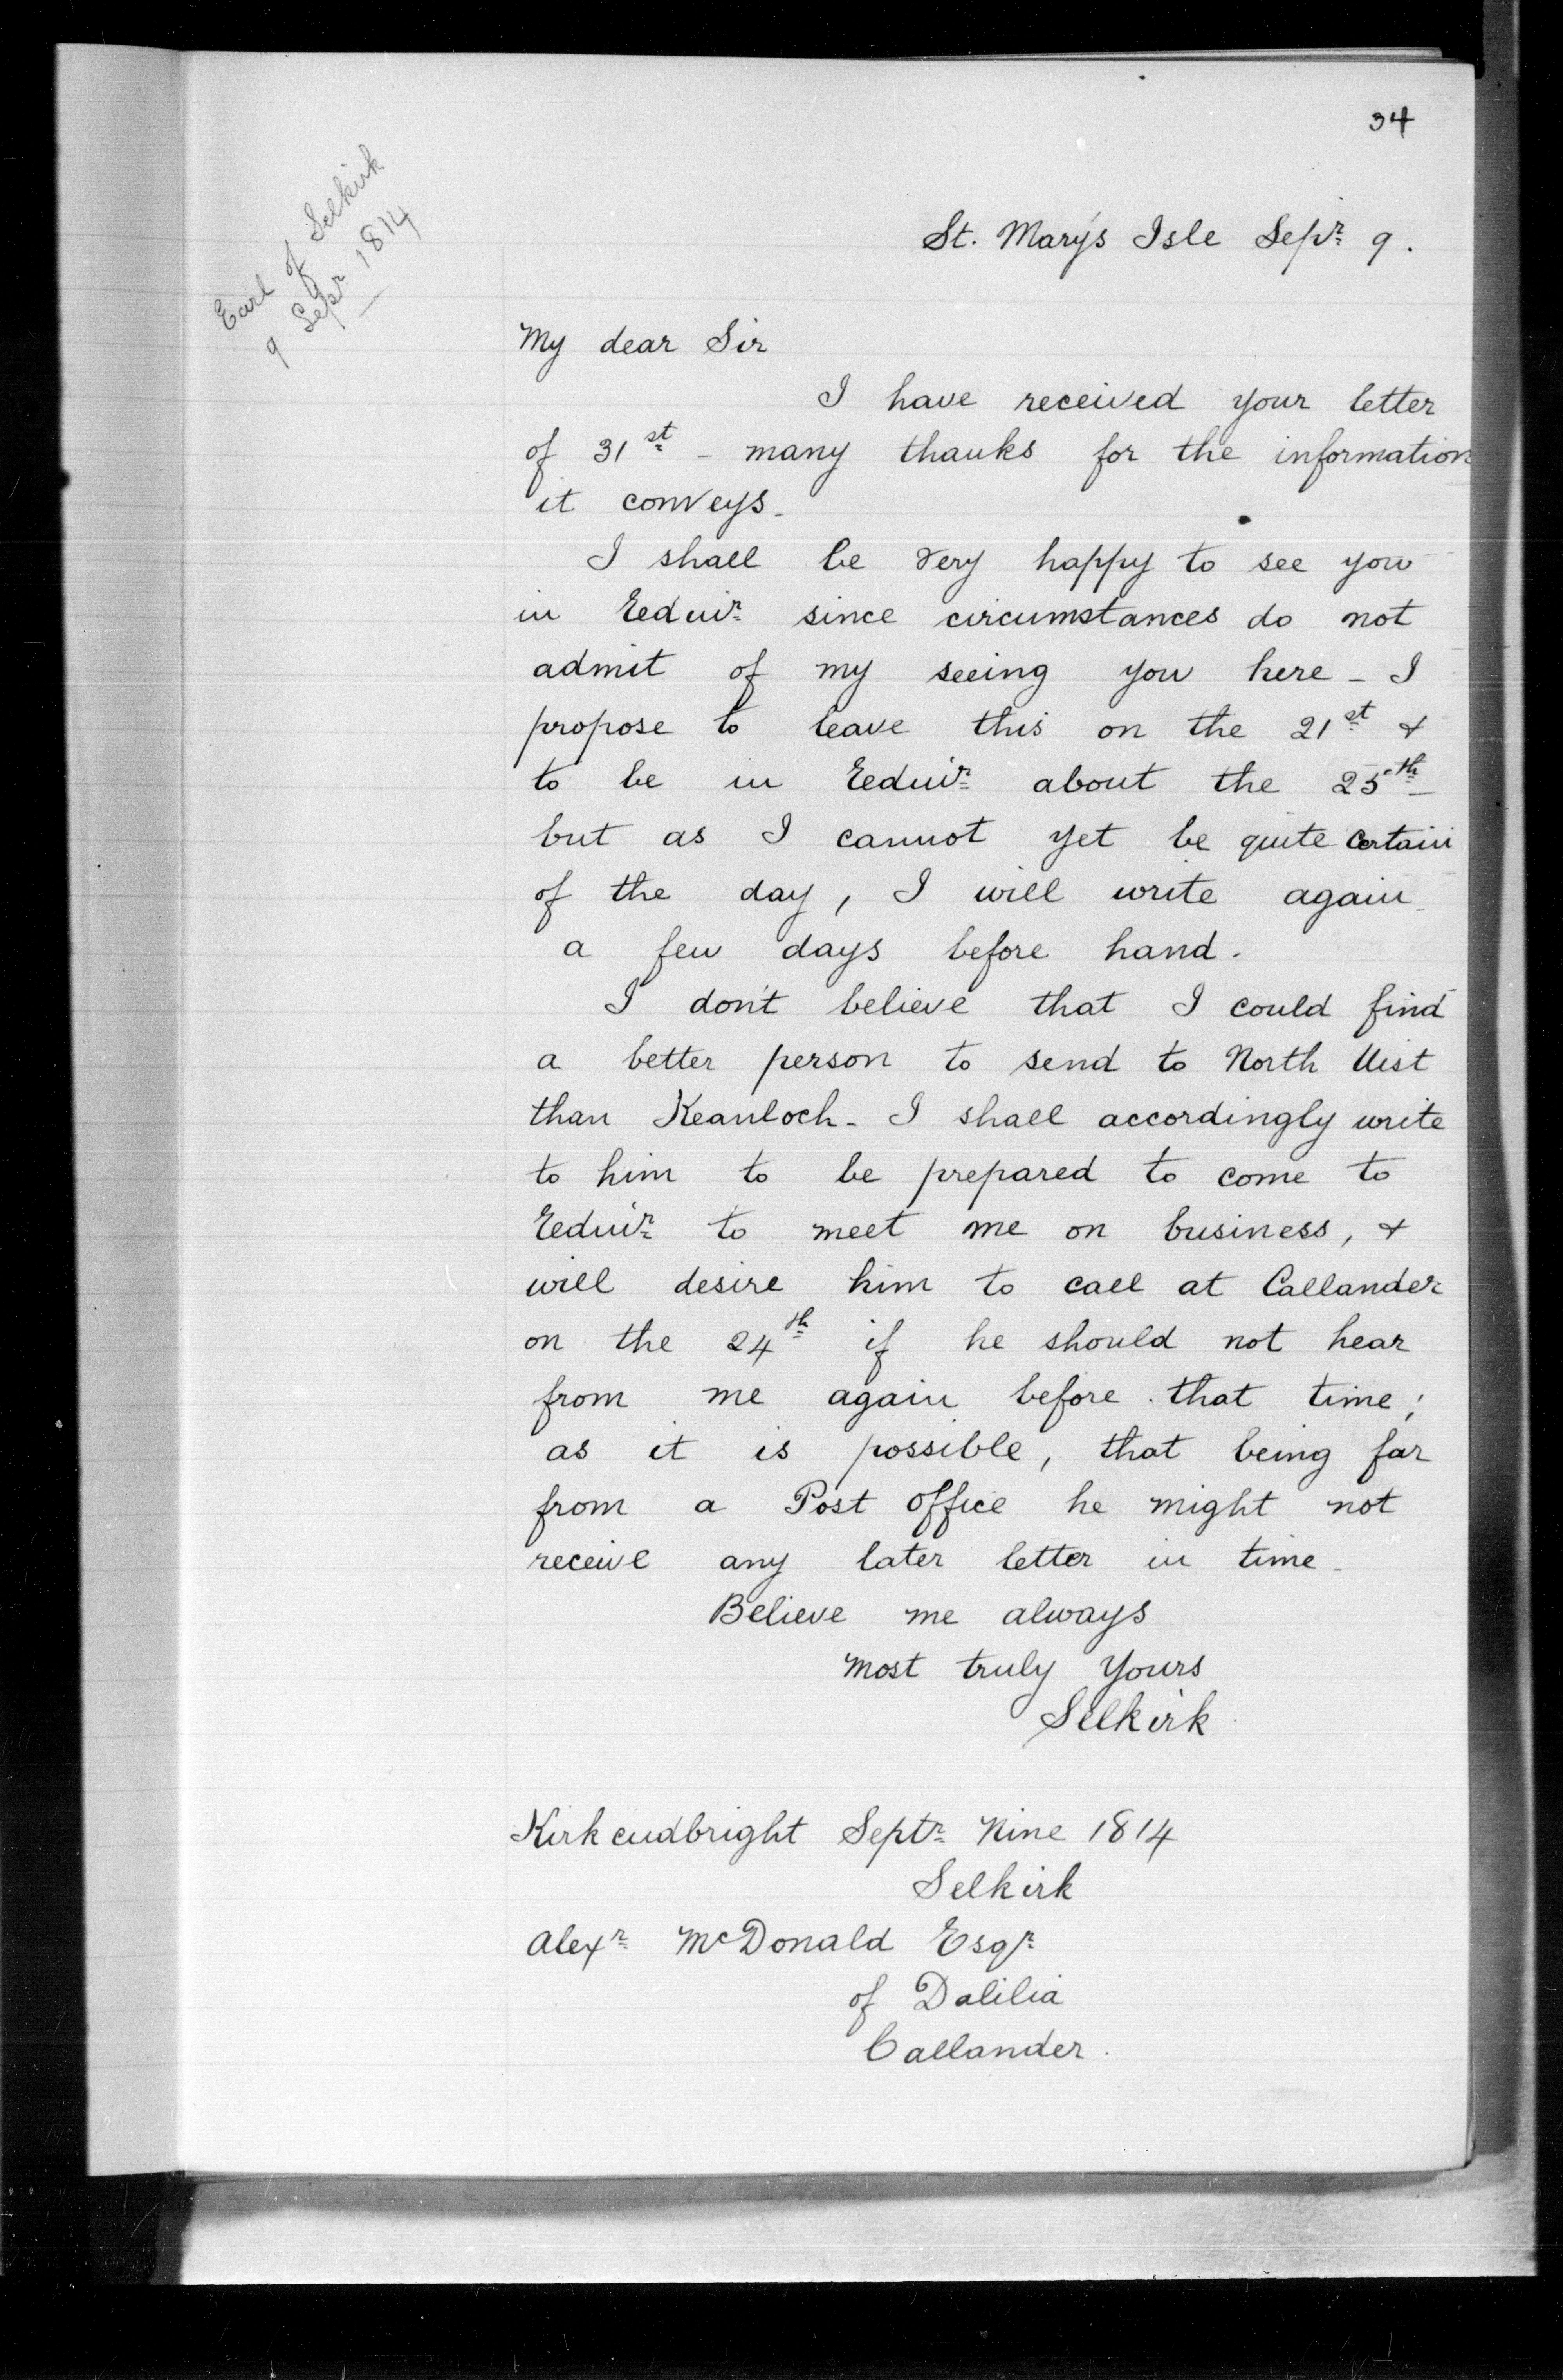 34
Earl of Selkirk
9 Sepr 1814
St. Mary's Isle Sepr 9.
My dear Sir
I have received your letter
of 31st - many thanks for the information
it conveys.
I shall be very happy to see you
in Eedinr since circumstances do not
admit of my seeing you here - I
propose to leave this on the 21st &
to be in Eedinr about the 25th -
but as I cannot yet be quite certain
of the day, I will write again
a few days before hand.
I don't believe that I could find
a better person to send to North Uist
than Keanloch - I shall accordingly write
to him to be prepared to come to
Eedinr to meet me on business, &
will desire him to call at Callander
on the 24th if he should not hear
from me again before that time;
as it is possible, that being far
from a Post office he might not
receive any later letter in time.
Believe me always
most truly Yours
Selkirk
Kirkcudbright Septr Nine 1814
Selkirk
Alexr McDonald Esqr
of Dalilia
Callander.